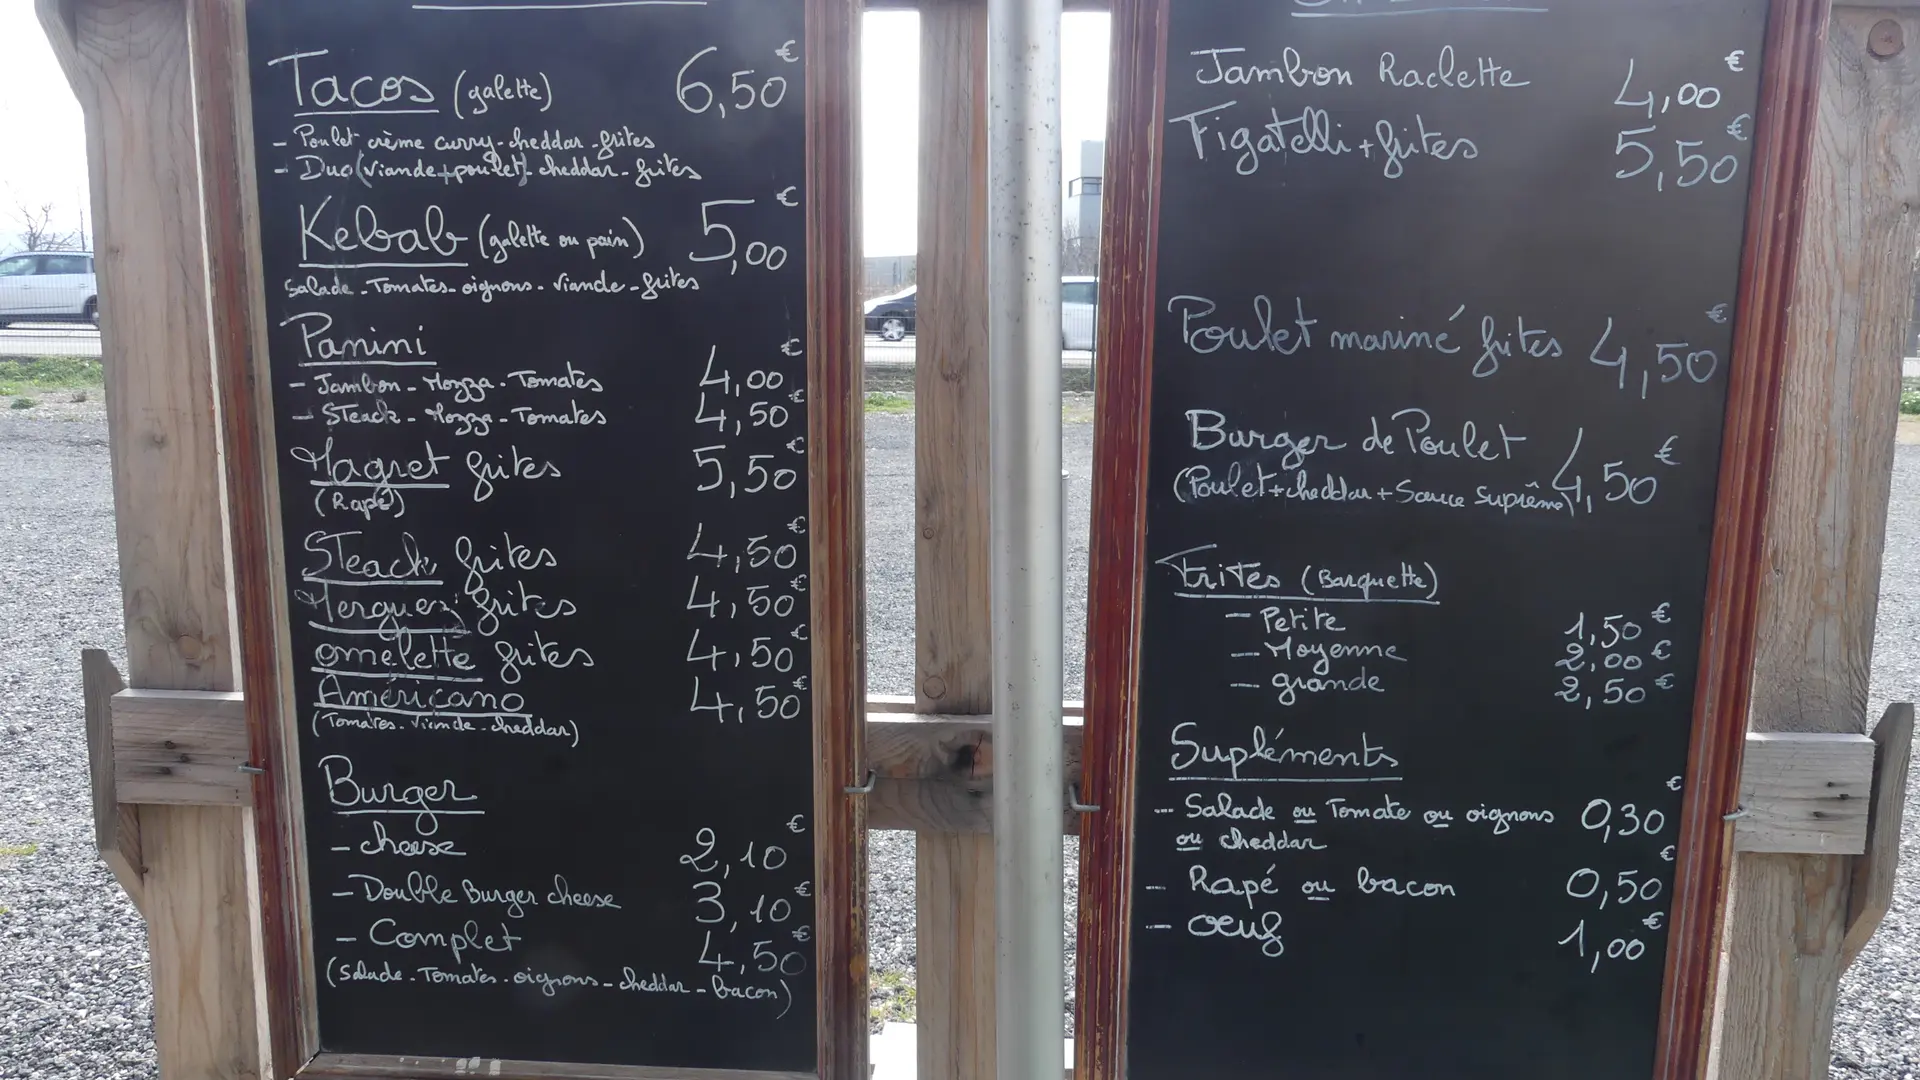 Tacos (galette) 6,50 €
- Poulet crème curry - cheddar - frites
- Duo (viande + poulet) - cheddar - frites
Kebab (galette ou pain) 5,00 €
Salade - Tomates - oignons - viande - frites
Panini
- Jambon - Mozza - Tomates 4,00 €
- STeack - Mozza - Tomates 4,50 €
Magret frites 5,50 €
(Rapé)
STeack frites 4,50 €
Merguez frites 4,50 €
omelette frites 4,50 €
Américano 4,50 €
(Tomates - viande - cheddar)
Burger
- cheese 2,10 €
- Double Burger cheese 3,10 €
- Complet 4,50 €
(Salade - Tomates - oignons - cheddar - bacon)
Jambon Raclette 4,00 €
Figatelli + frites 5,50 €
Poulet mariné frites 4,50 €
Burger de Poulet 4,50 €
(Poulet + cheddar + Sauce suprême)
FriTes (Barquette)
- Petite 1,50 €
- Moyenne 2,00 €
- grande 2,50 €
Supléments
- Salade ou Tomate ou oignons 0,30 €
ou cheddar
- Rapé ou bacon 0,50 €
- oeuf 1,00 €